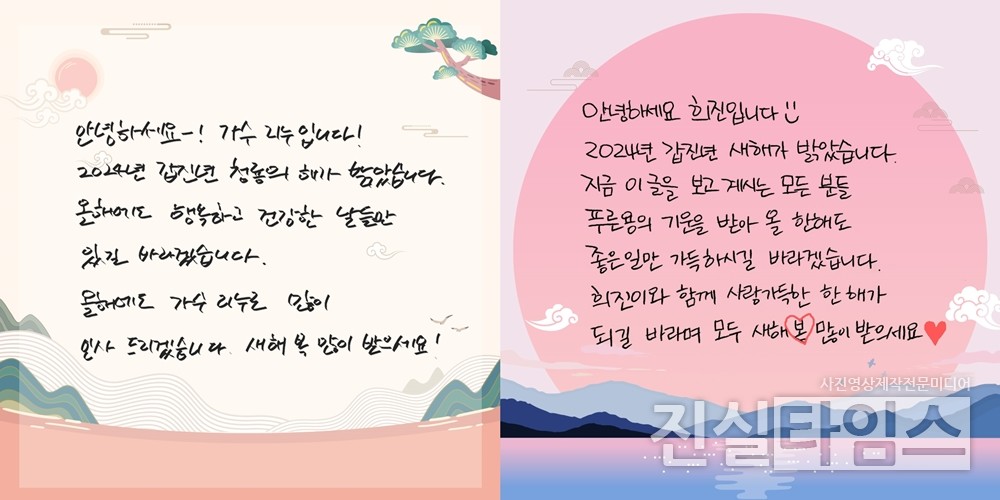 안녕하세요~! 가수 리누입니다!
2024년 갑진년 청룡의 해가 밝았습니다.
올해에도 행복하고 건강한 날들만
있길 바라겠습니다.
올해에도 가수 리누로 많이
인사 드리겠습니다. 새해 복 많이 받으세요!
안녕하세요 희진입니다
2024년 갑진년 새해가 밝았습니다.
지금 이 글을 보고 계시는 모든 분들
푸른용의 기운을 받아 올 한해도
좋은일만 가득하시길 바라겠습니다.
희진이와 함께 사랑가득한 한해가
되길 바라며 모두 새해 복 많이 받으세요
사진영상제작전문미디어
진실타임스